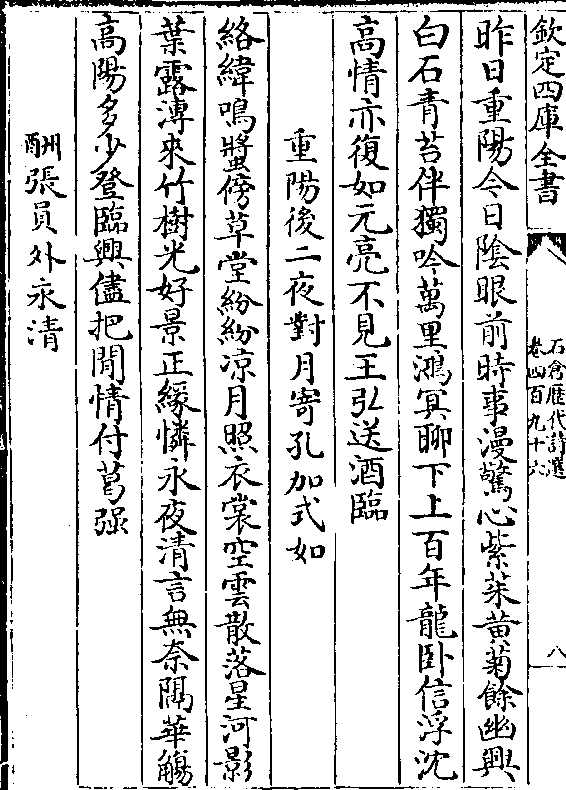 欽定四庫全書
石倉歷代詩選
卷四百九十六
八
昨日重陽今日陰眼前時事漫驚心紫茱黄菊餘幽興
白石青苔伴獨吟萬里鴻冥聊下上百年龍卧信浮沈
高情亦復如元亮不見王弘送酒臨
重陽後二夜對月寄孔加式如
絡緯鳴螿傍草堂紛紛凉月照衣裳空雲散落星河影
葉露漙來竹樹光好景正緣憐永夜清言無奈隔華觴
高陽多少登臨興儘把閒情付葛强
酬張員外永清